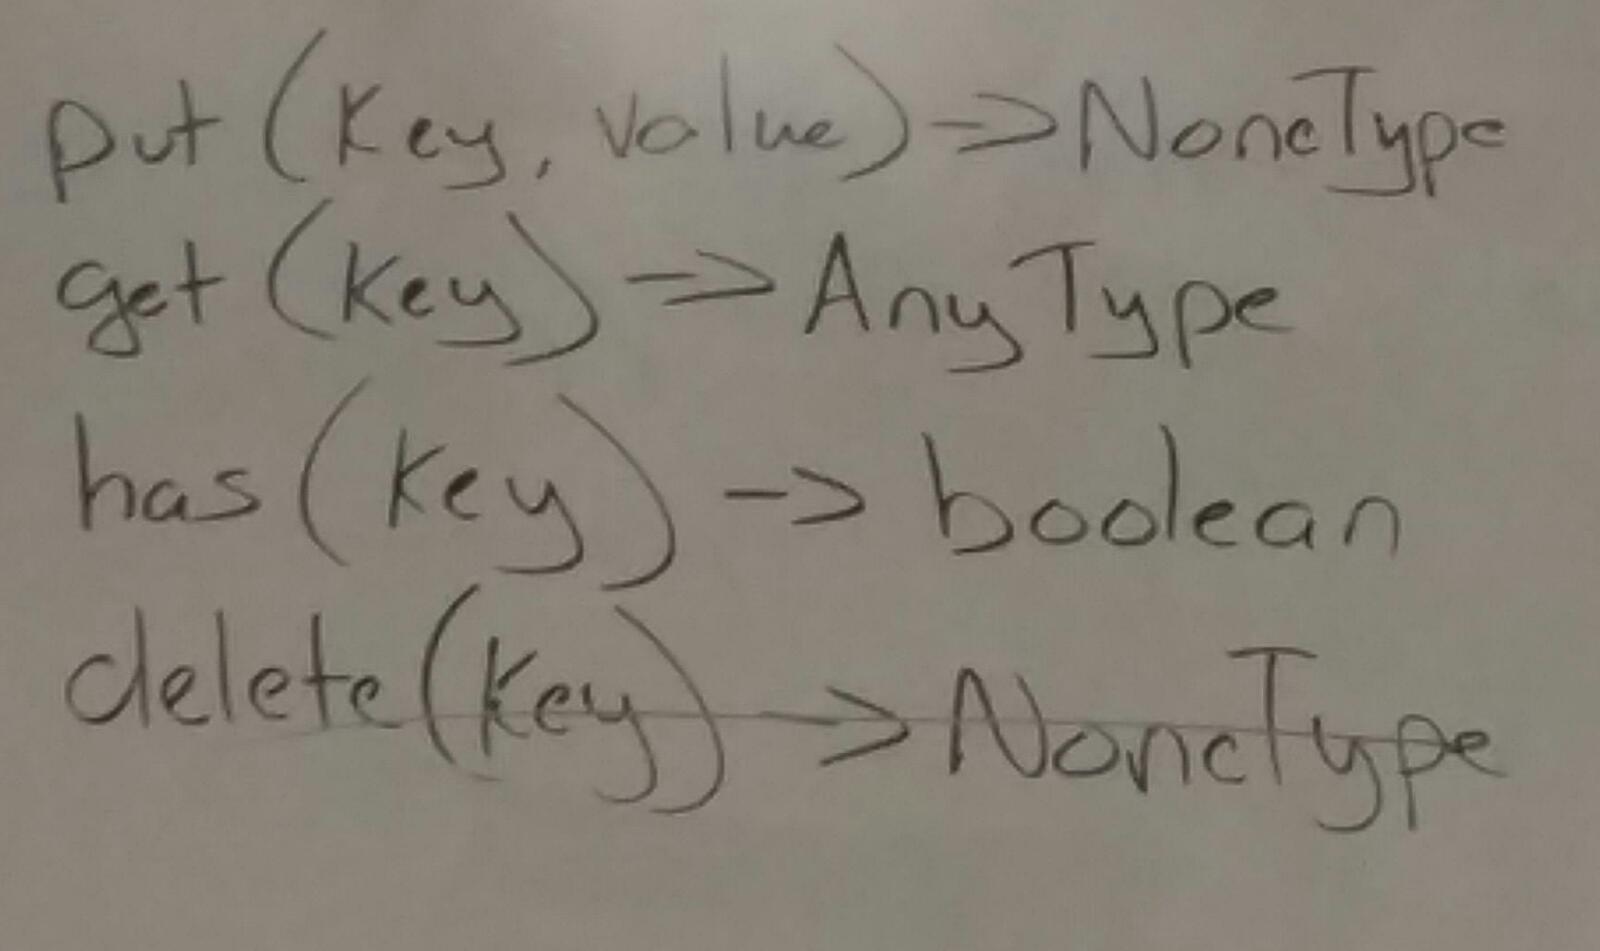 put (Key, value) -> NoneType
get (Key) -> AnyType
has (key) -> boolean
delete (key) -> NoneType